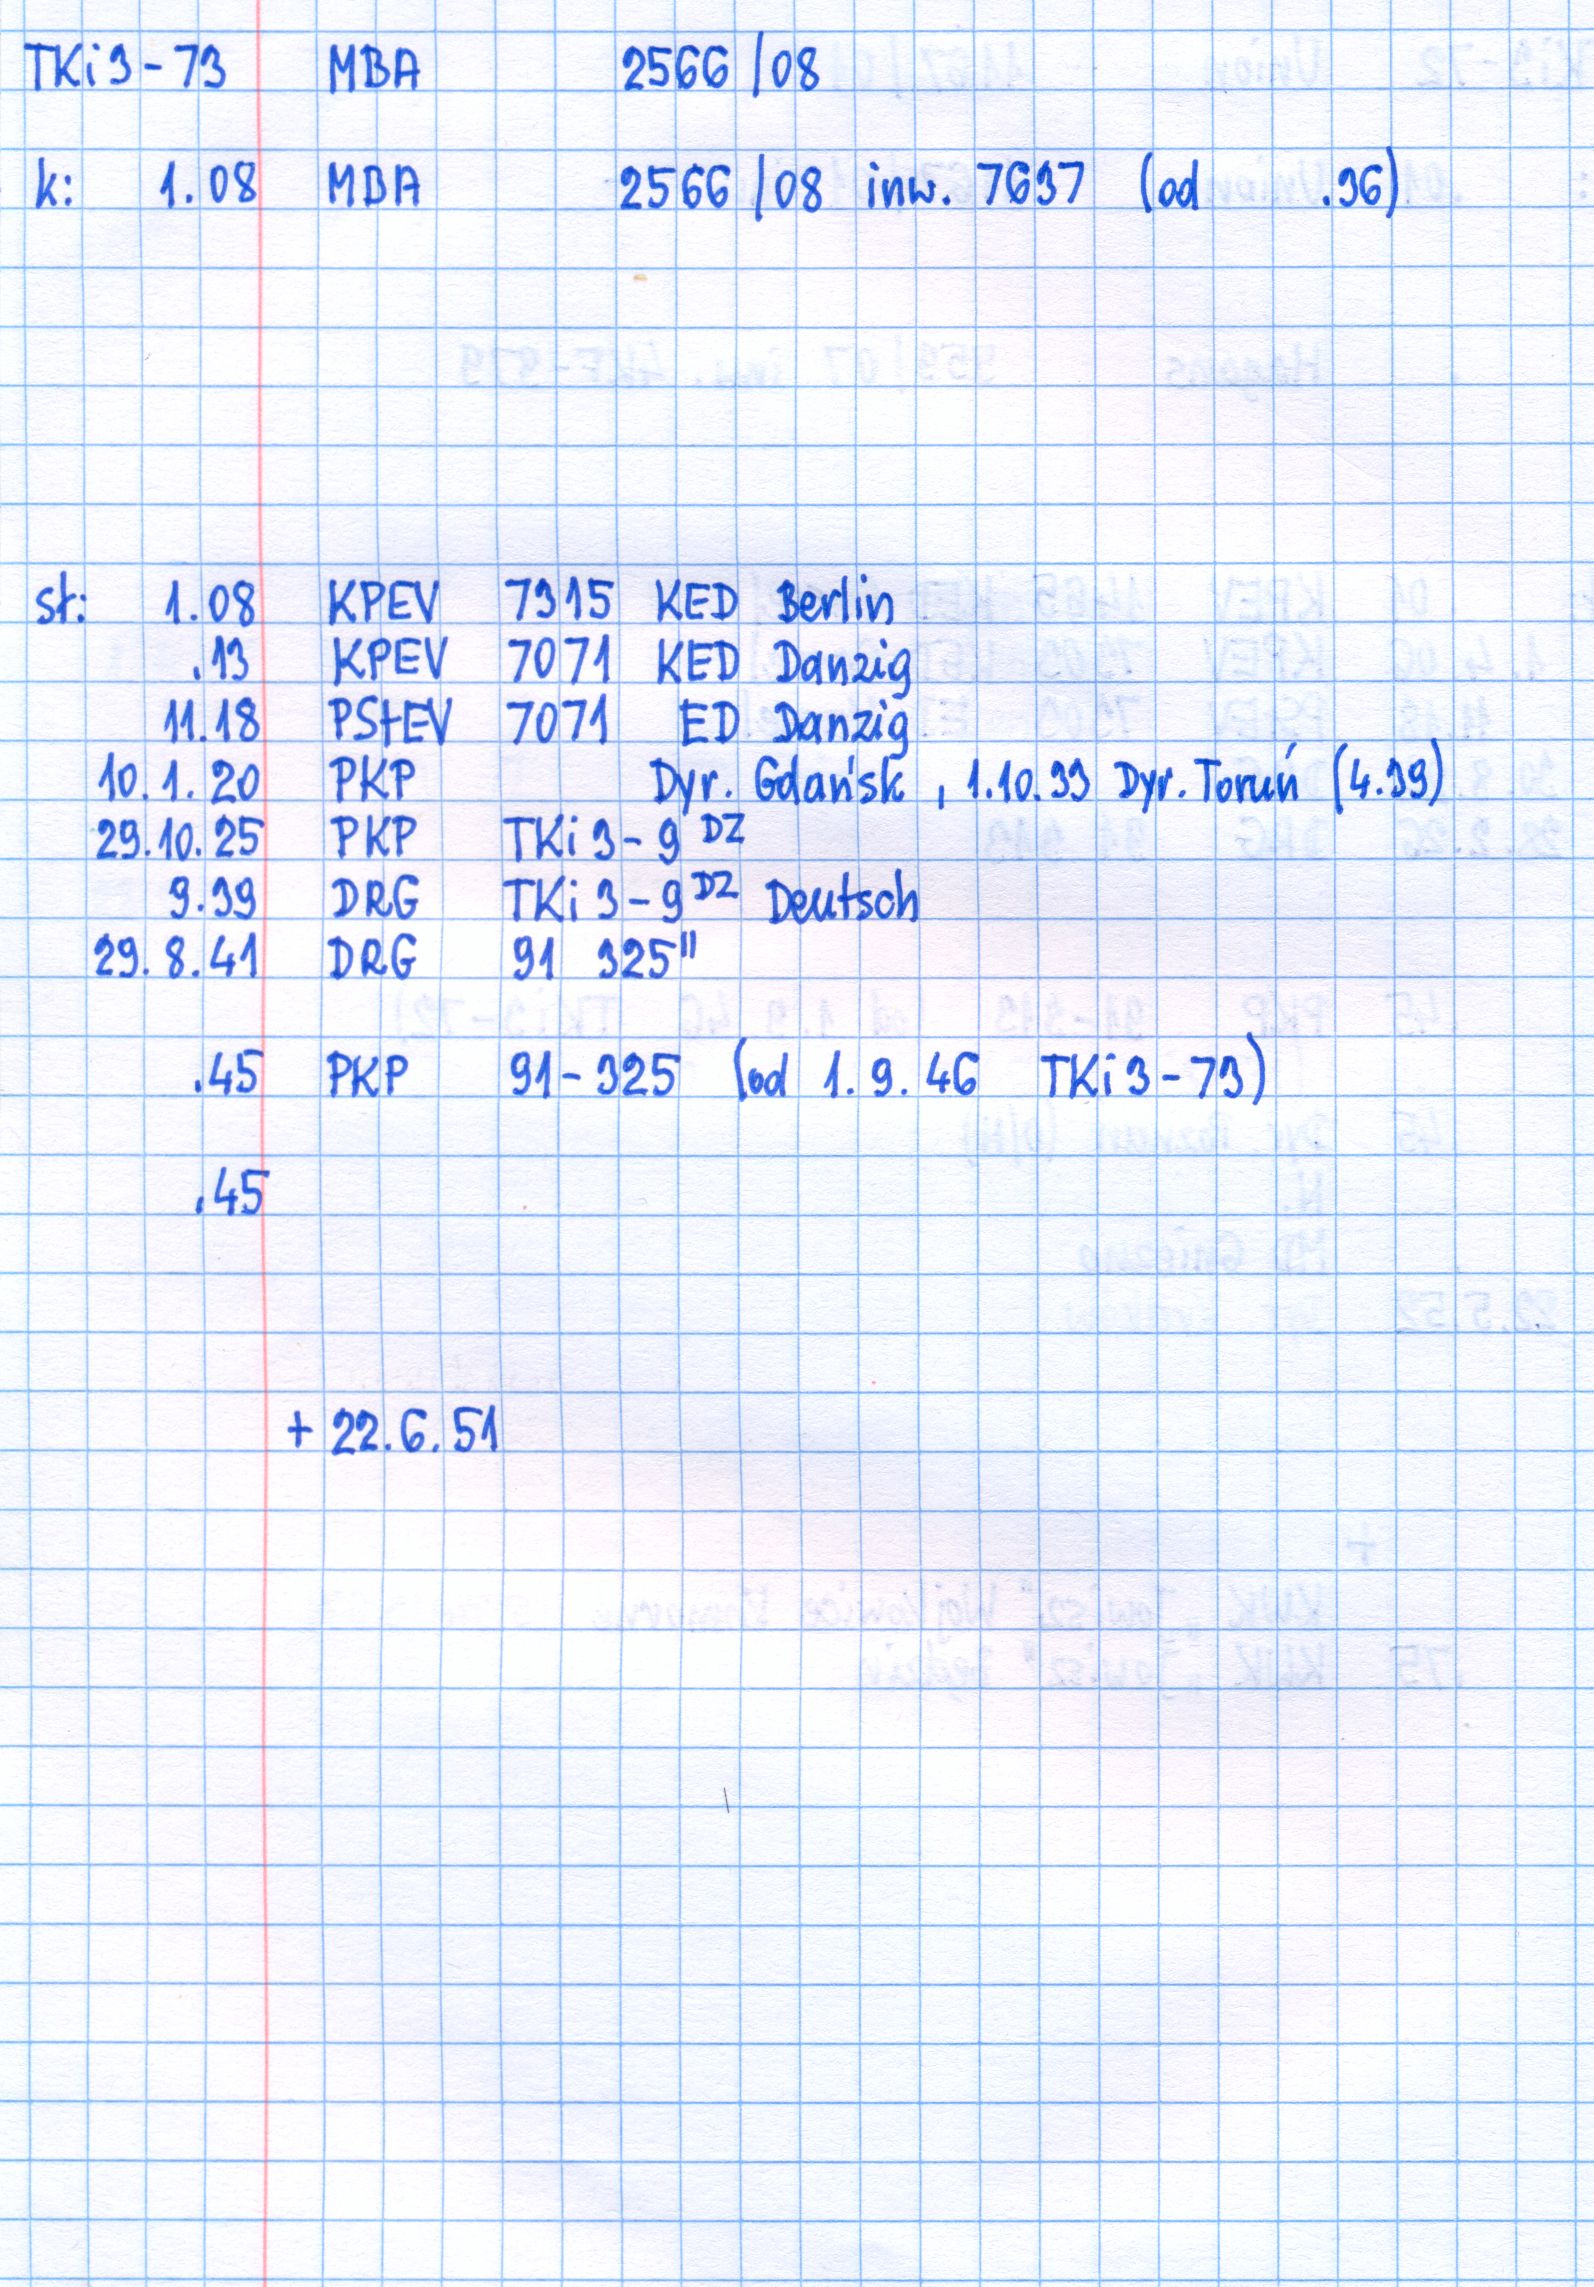 TKi 3-73 MBA 2566/08
k: 1.08 MBA 2566/08 inw. 7637 (od .36)
st: 1.08 KPEV 7315 KED Berlin
.13 KPEV 7071 KED Danzig
11.18 PStEV 7071 ED Danzig
10.1.20 PKP Dyr. Gdańsk, 1.10.33 Dyr. Toruń (4.39)
29.10.25 PKP TKi 3-9 DZ
9.39 DRG TKi 3-9 DZ Deutsch
29.8.41 DRG 91 325"
.45 PKP 91-325 (od 1.9.46 TKi 3-73)
.45
+ 22.6.51